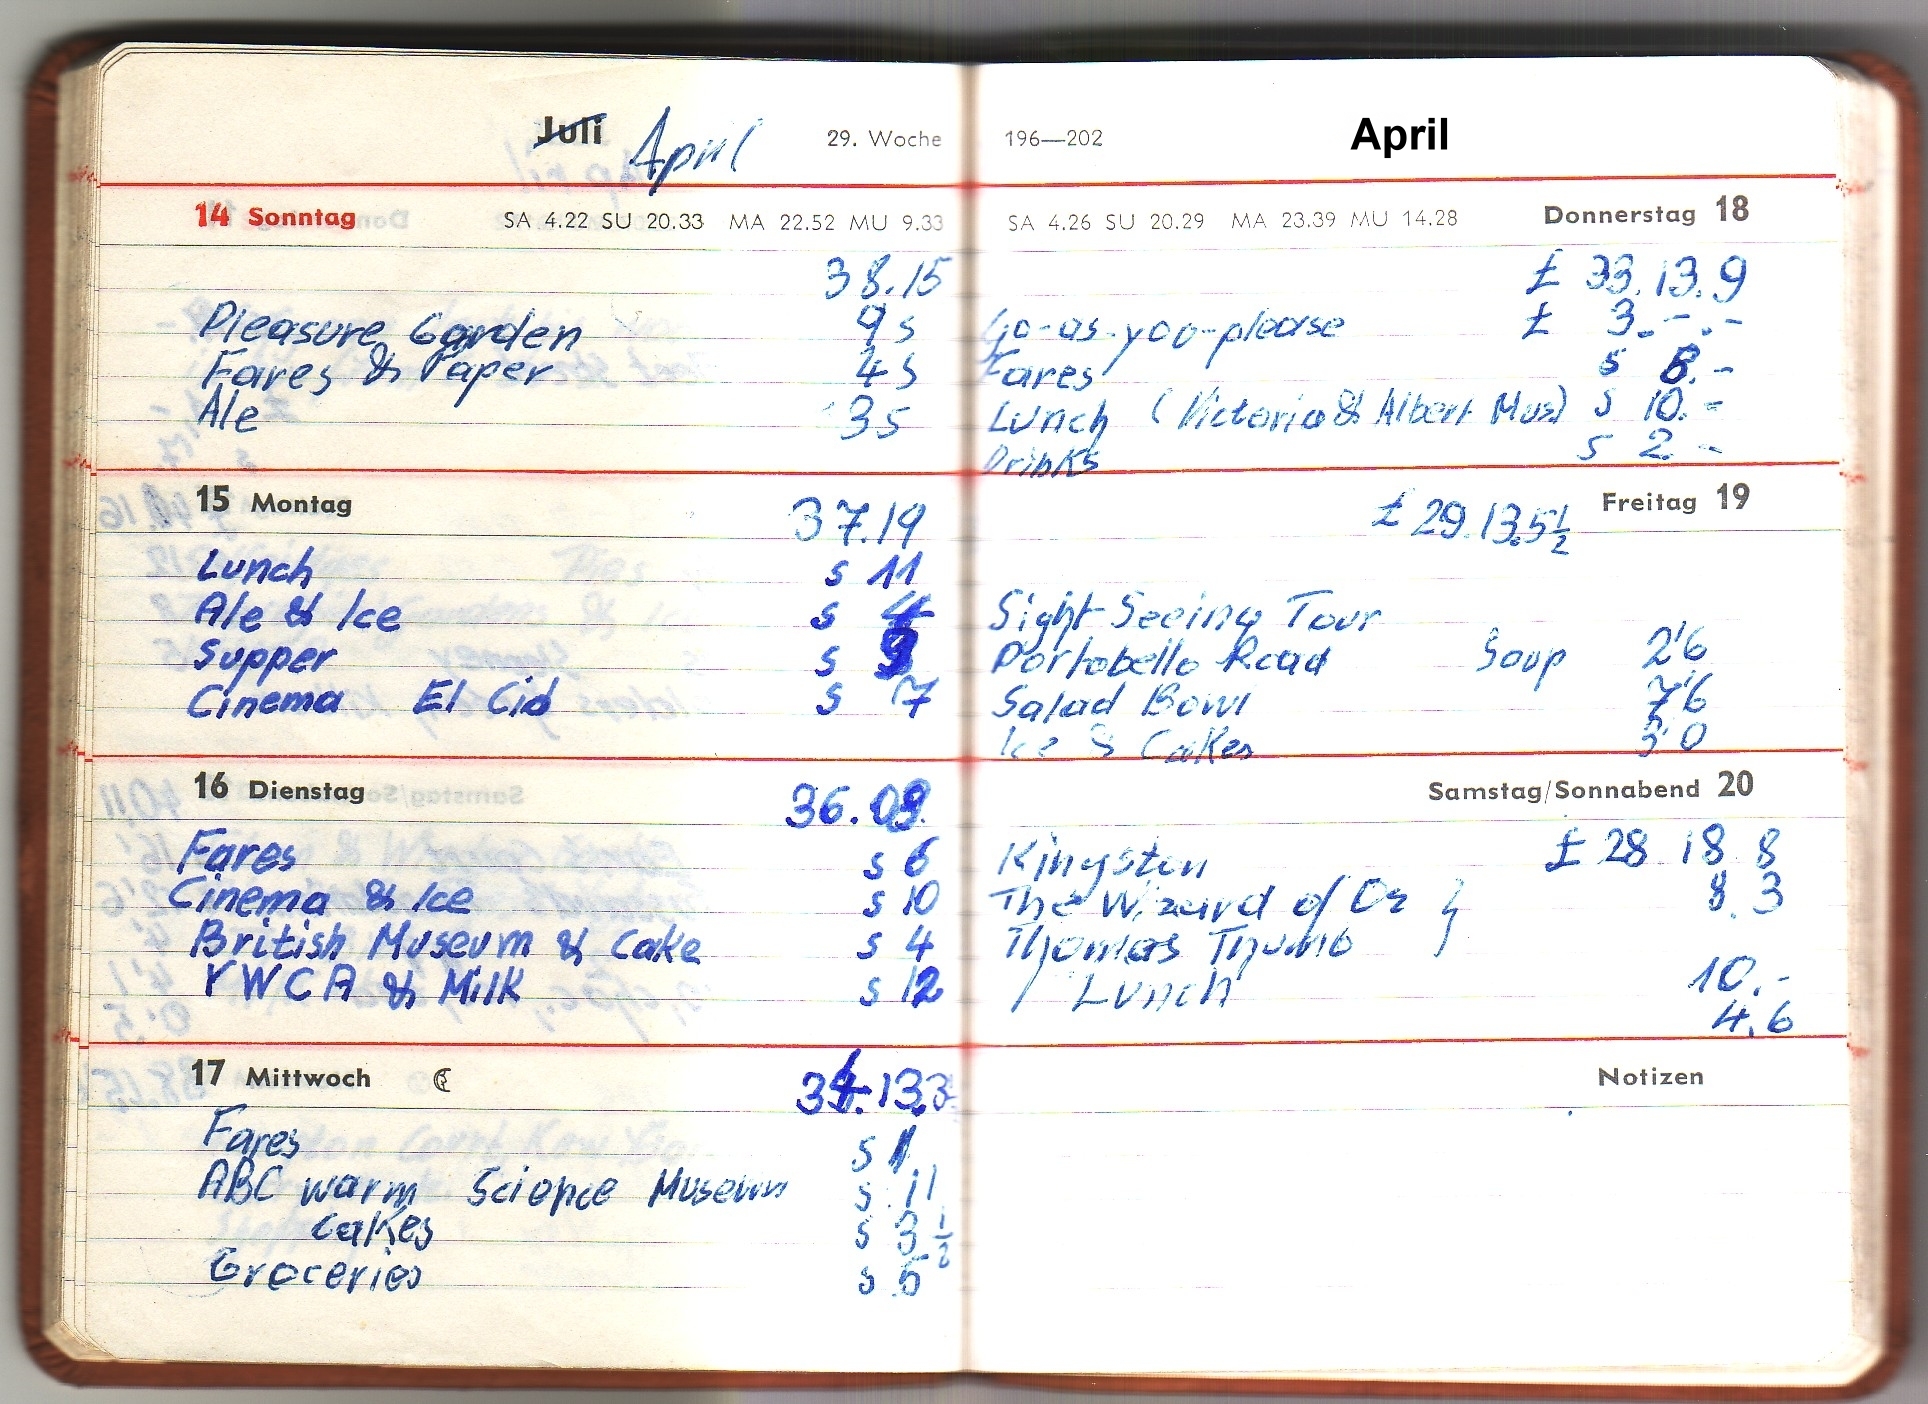 Juli April 29. Woche
14 Sonntag SA 4.22 SU 20.33 MA 22.52 MU 9.33
38.15
Pleasure Garden 9 s
Fares & Paper 4 s
Ale 3 s
15 Montag 37.19
Lunch s 11
Ale & Ice s 4
Supper s 9
Cinema El Cid s 7
16 Dienstag 36.09.
Fares s 6
Cinema & Ice s 10
British Museum & Cake s 4
YWCA & Milk s 12
17 Mittwoch 34.13.3
Fares s 1
ABC warm Science Museum s 11
Cakes s 3 1/2
Groceries s 5
196—202 April
SA 4.26 SU 20.29 MA 23.39 MU 14.28 Donnerstag 18
£ 33.13.9
Go-as-you-please £ 3.-.-
Fares s 8.-
Lunch (Victoria & Albert Mus) s 10.-
Drinks s 2.-
Freitag 19
£ 29.13.5 1/2
Sight Seeing Tour
Portobello Road Soup 2'6
Salad Bowl 7'6
Ice & Cakes 3'0
Samstag/Sonnabend 20
Kingston £ 28 18 8
The Wizard of Oz } 8.3
Thomas Thumb
/ Lunch 10.-
4.6
Notizen